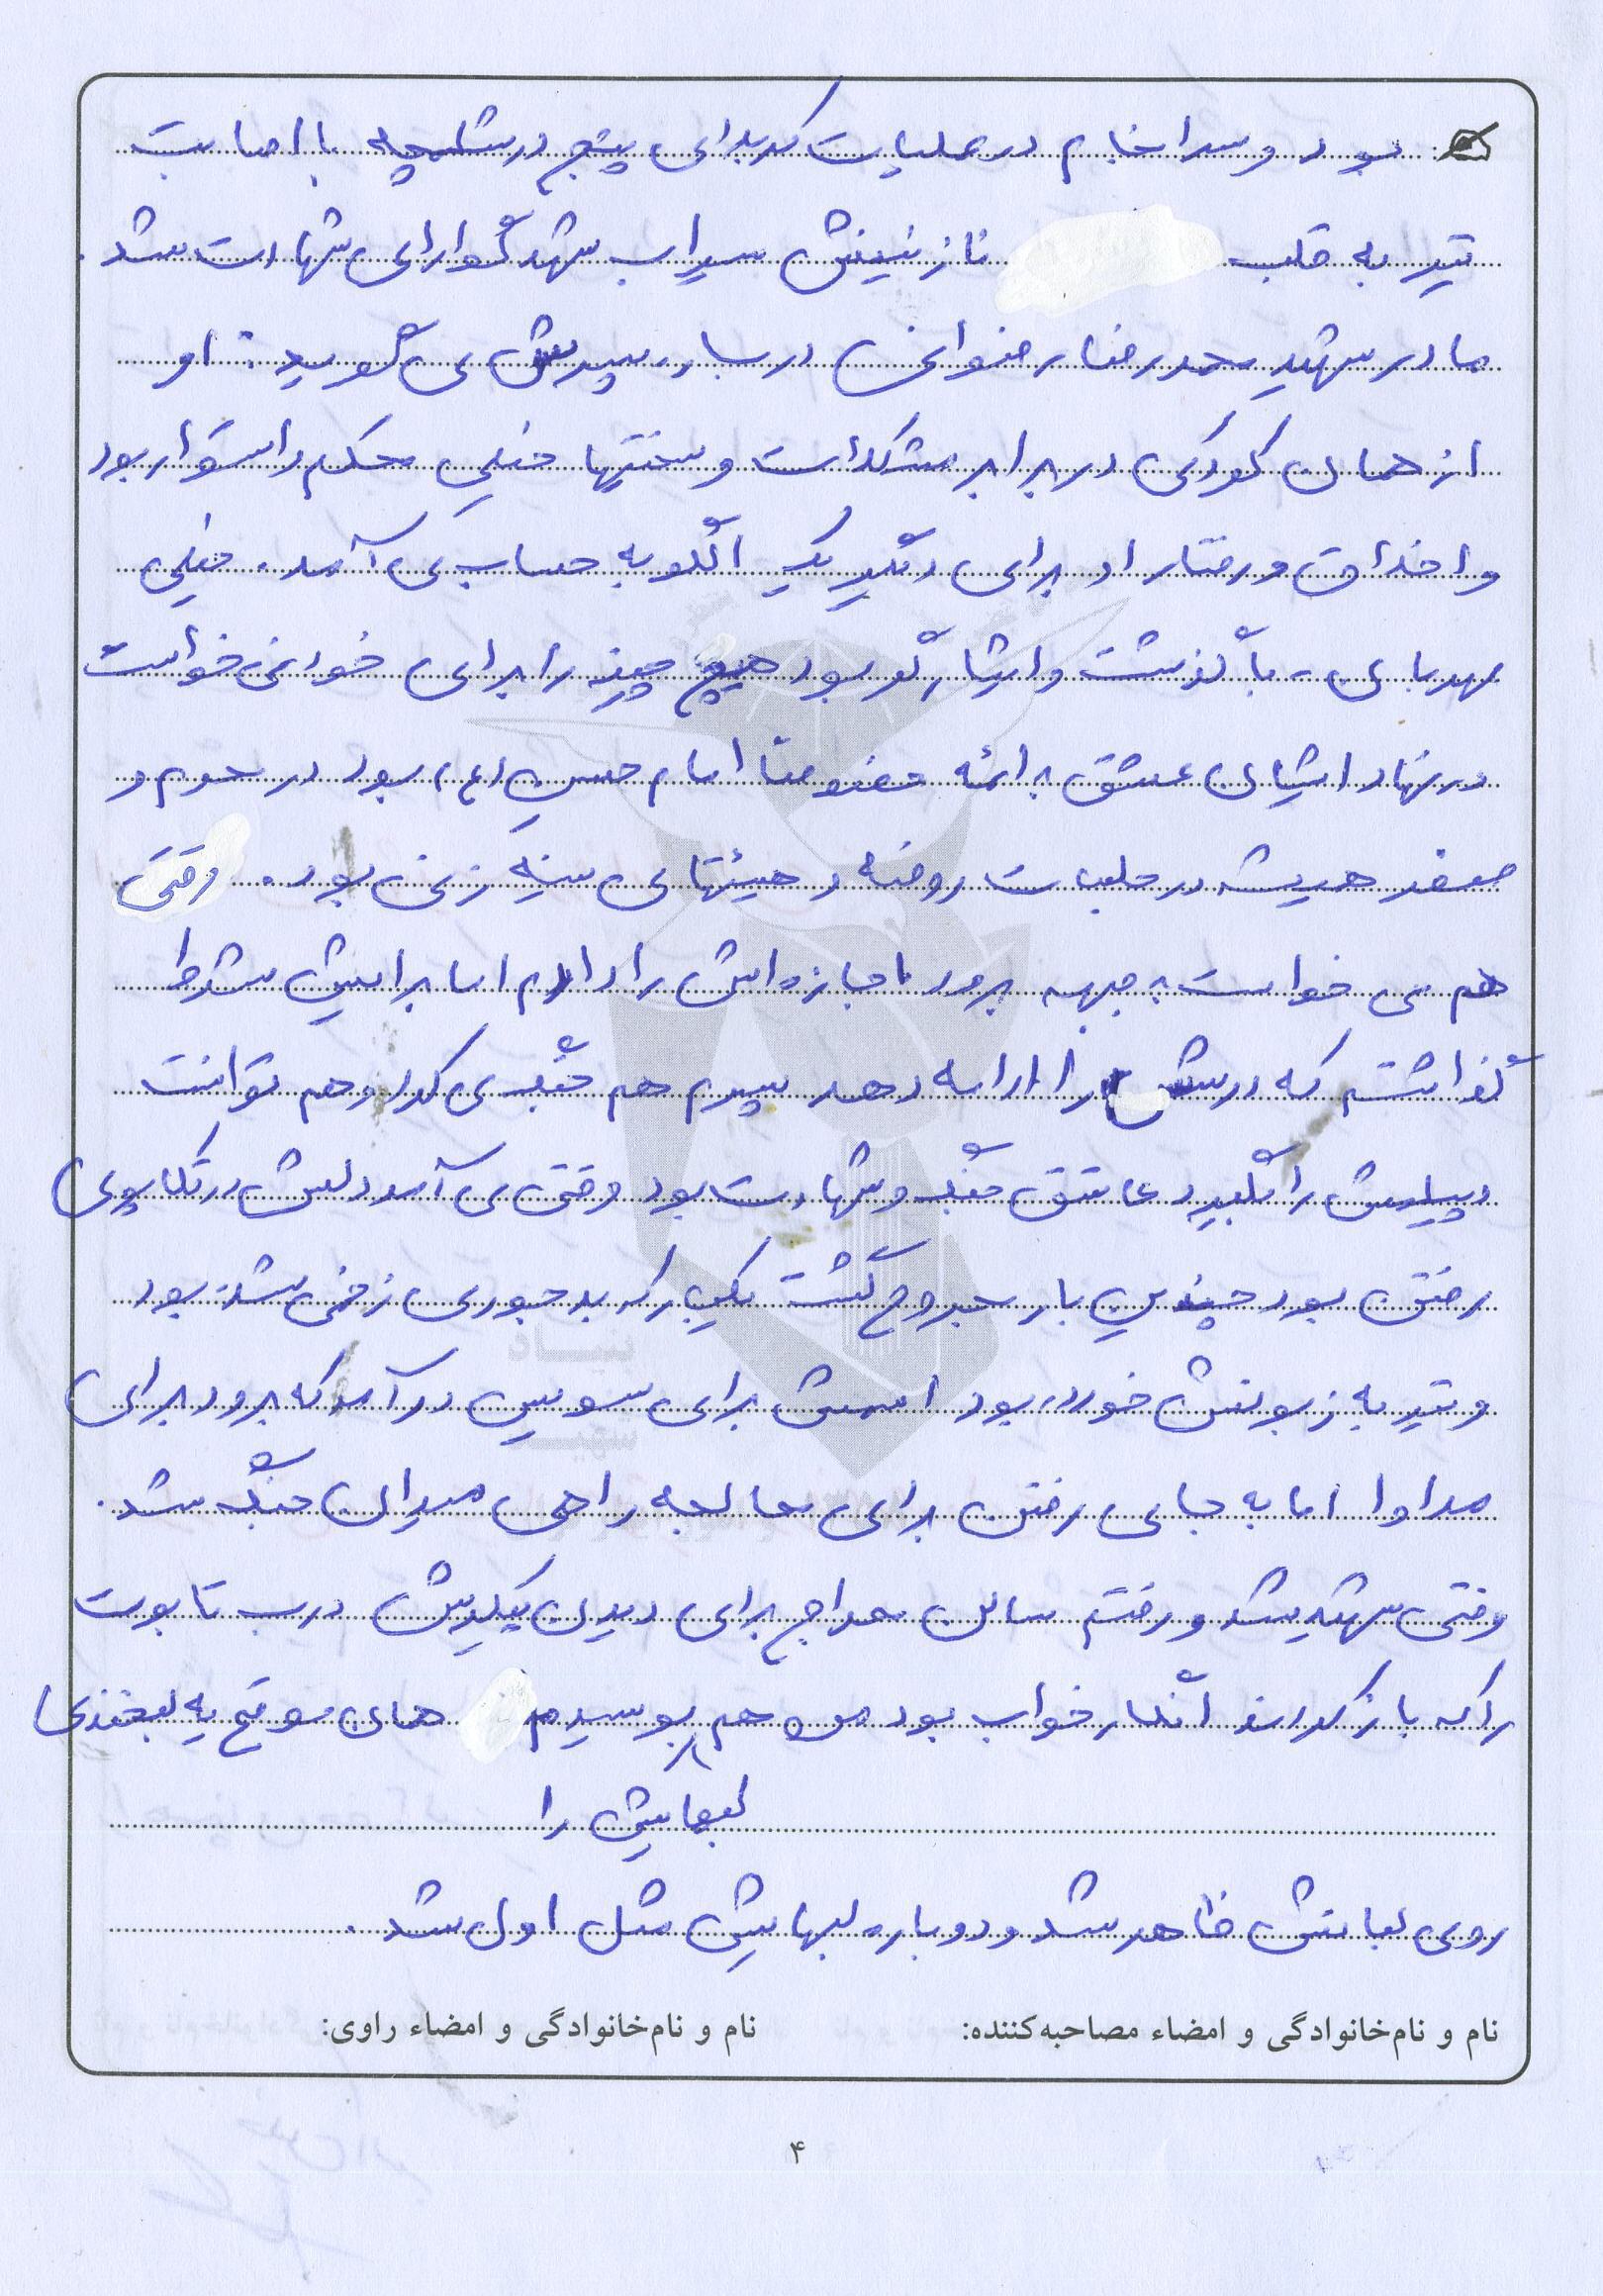 بود و سرانجام در عملیات کربلای پنج در شلمچه با اصابت
تیر به قلب نازنینش سیراب شهد گوارای شهادت شد.
مادر شهید محمدرضا رضوانی درباره پسرش می گوید: او
از همان کودکی در برابر مشکلات و سختیها خیلی محکم و استوار بود
و اخلاق و رفتار او برای دیگران یک الگو به حساب می آمد. خیلی
مهربان - با گذشت و ایثارگر بود هیچ چیز را برای خود نمی خواست
در نهاد ایشان عشق به ائمه خصوصا امام حسین (ع) بود در محرم و
صفر همیشه در جلسات روضه و هیئتهای سینه زنی بود. وقتی
هم می خواست به جبهه برود اجازه اش را دادم اما برایش شرط
گذاشتم که درسش را ادامه دهد پسرم هم جنگ می کرد و هم توانست
دیپلمش را بگیرد عاشق جنگ و شهادت بود وقتی می آمد دلش در تکاپوی
رفتن بود چندین بار مجروح گشت یکبار که بدجوری زخمی شده بود
و تیر به زبونش خورده بود اسمش برای سویس در آمد که برود برای
مداوا اما به جای رفتن برای معالجه راهی میدان جنگ شد.
وقتی شهید شد و رفتم سالن معراج برای دیدن پیکرش درب تابوت
را که باز کردند انگار خواب بود من هم بوسیدم همان موقع یه لبخندی
لبهایش را
روی لبانش ظاهر شد و دوباره لبهایش مثل اول شد.
نام و نام‌خانوادگی و امضاء مصاحبه‌کننده: نام و نام‌خانوادگی و امضاء راوی:
۴